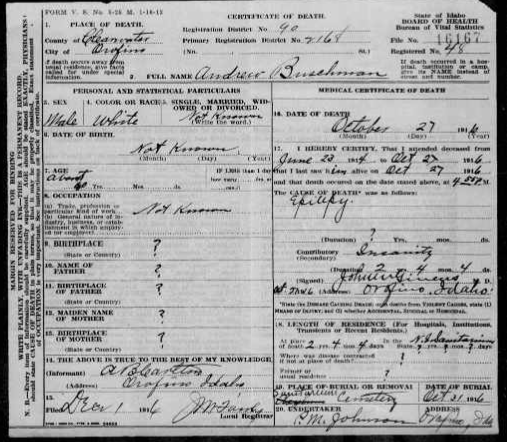 FORM V. S. No. 5-25 M. 1-14-13
CERTIFICATE OF DEATH.
State of Idaho
BOARD OF HEALTH
Bureau of Vital Statistics
1. PLACE OF DEATH.
County of Clearwater
City of Orofino
Registration District No. 90
Primary Registration District No. 2168
File No. 16167
Registered No. 48
(No. St.)
If death occurs away from usual residence, give facts called for under special information.
If death occurred in a hospital, institution or camp, give its NAME instead of street and number.
2. FULL NAME Andrew Buschman
PERSONAL AND STATISTICAL PARTICULARS
3. SEX
Male
4. COLOR OR RACE
White
5. SINGLE, MARRIED, WIDOWED OR DIVORCED.
Not Known
(Write the word.)
6. DATE OF BIRTH.
Not Known
(Month) (Day) (Year)
7. AGE
about
Yrs. Mos. ds.
IF LESS than 1 day
hrs. or min.
8. OCCUPATION
(a) Trade, profession or particular kind of work
(b) General nature of industry, business, or establishment in which employed (or employer)
Not Known
9. BIRTHPLACE
(State or County) ?
10. NAME OF FATHER ?
11. BIRTHPLACE OF FATHER
(State or County) ?
12. MAIDEN NAME OF MOTHER ?
13. BIRTHPLACE OF MOTHER
(State or Country) ?
14. THE ABOVE IS TRUE TO THE BEST OF MY KNOWLEDGE.
(Informant)
(Address) Orofino Idaho
15.
Filed Dec 1 1916
Local Registrar
MEDICAL CERTIFICATE OF DEATH
16. DATE OF DEATH
October 27 1916
(Month) (Day) (Year)
17. I HEREBY CERTIFY, That I attended deceased from
June 23 1914 to Oct 27 1916
that I last saw him alive on Oct 27 1916
and that death occurred on the date stated above, at M.
The CAUSE OF DEATH* was as follows:
Epilepsy.
(Duration) ? Yrs. mos. ds.
Contributory Insanity
(Secondary)
(Duration) 2 4 mos. 4 ds.
(Signed) M. D.
Orofino, Idaho
*State the DISEASE CAUSING DEATH, or, in deaths from VIOLENT CAUSES, state (1) MEANS OF INJURY; and (2) whether ACCIDENTAL, SUICIDAL or HOMICIDAL.
18. LENGTH OF RESIDENCE (For Hospitals, Institutions, Transients or Recent Residents.)
At place of death 2 4 mos 4 days
In the State ? ? mos ? days
N.I. Sanitarium
Where was disease contracted if not at place of death? ?
Former or usual residence ?
19. PLACE OF BURIAL OR REMOVAL
Sanitarium Cemetery
Oct 31 1916
20. UNDERTAKER
Johnson
ADDRESS
Orofino, Ida
MARGIN RESERVED FOR BINDING
WRITE PLAINLY, WITH UNFADING INK—THIS IS A PERMANENT RECORD.